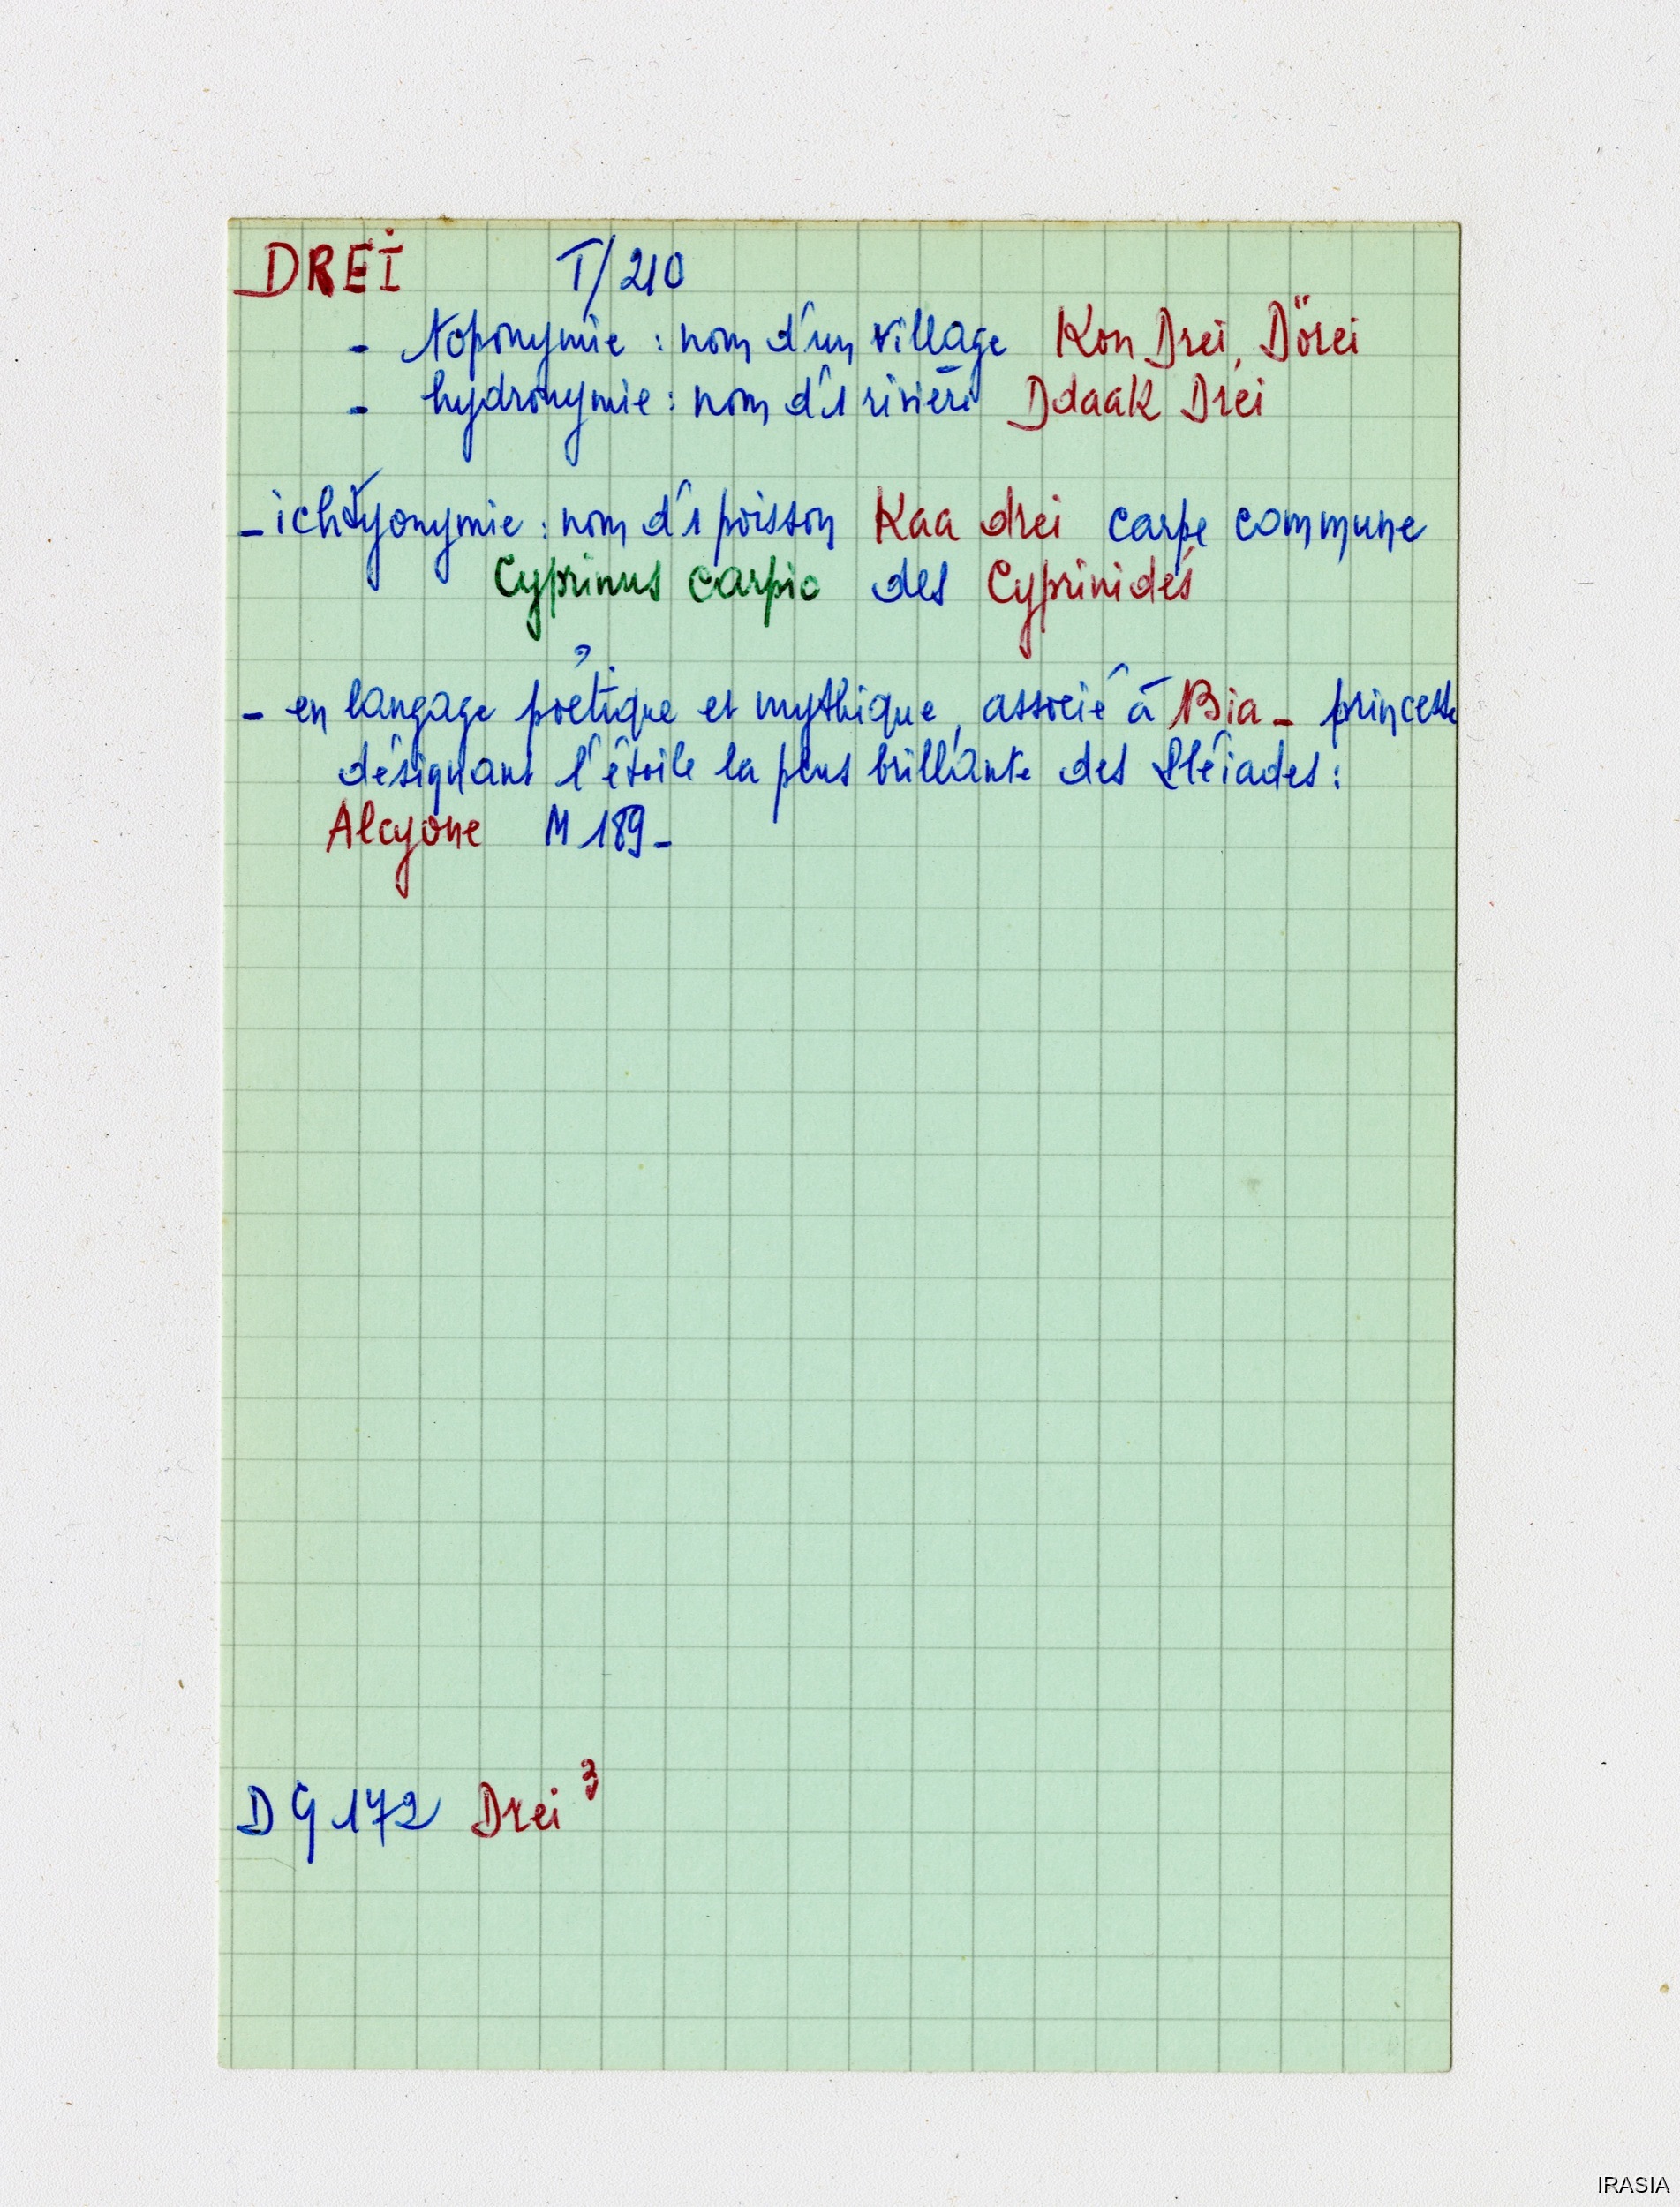 DREI T/210
- toponymie : nom d'un village Kon Drei, Dörei
- hydronymie : nom d'1 rivière Ddaak Drei
- ichtyonymie : nom d'1 poisson Kaa drei carpe commune
Cyprinus carpio des Cyprinidés
- en langage poétique et mythique, associé à Bia - princesse
désignant l'étoile la plus brillante des Pléiades :
Alcyone M 189 -
DG 172 Drei ³
IRASIA